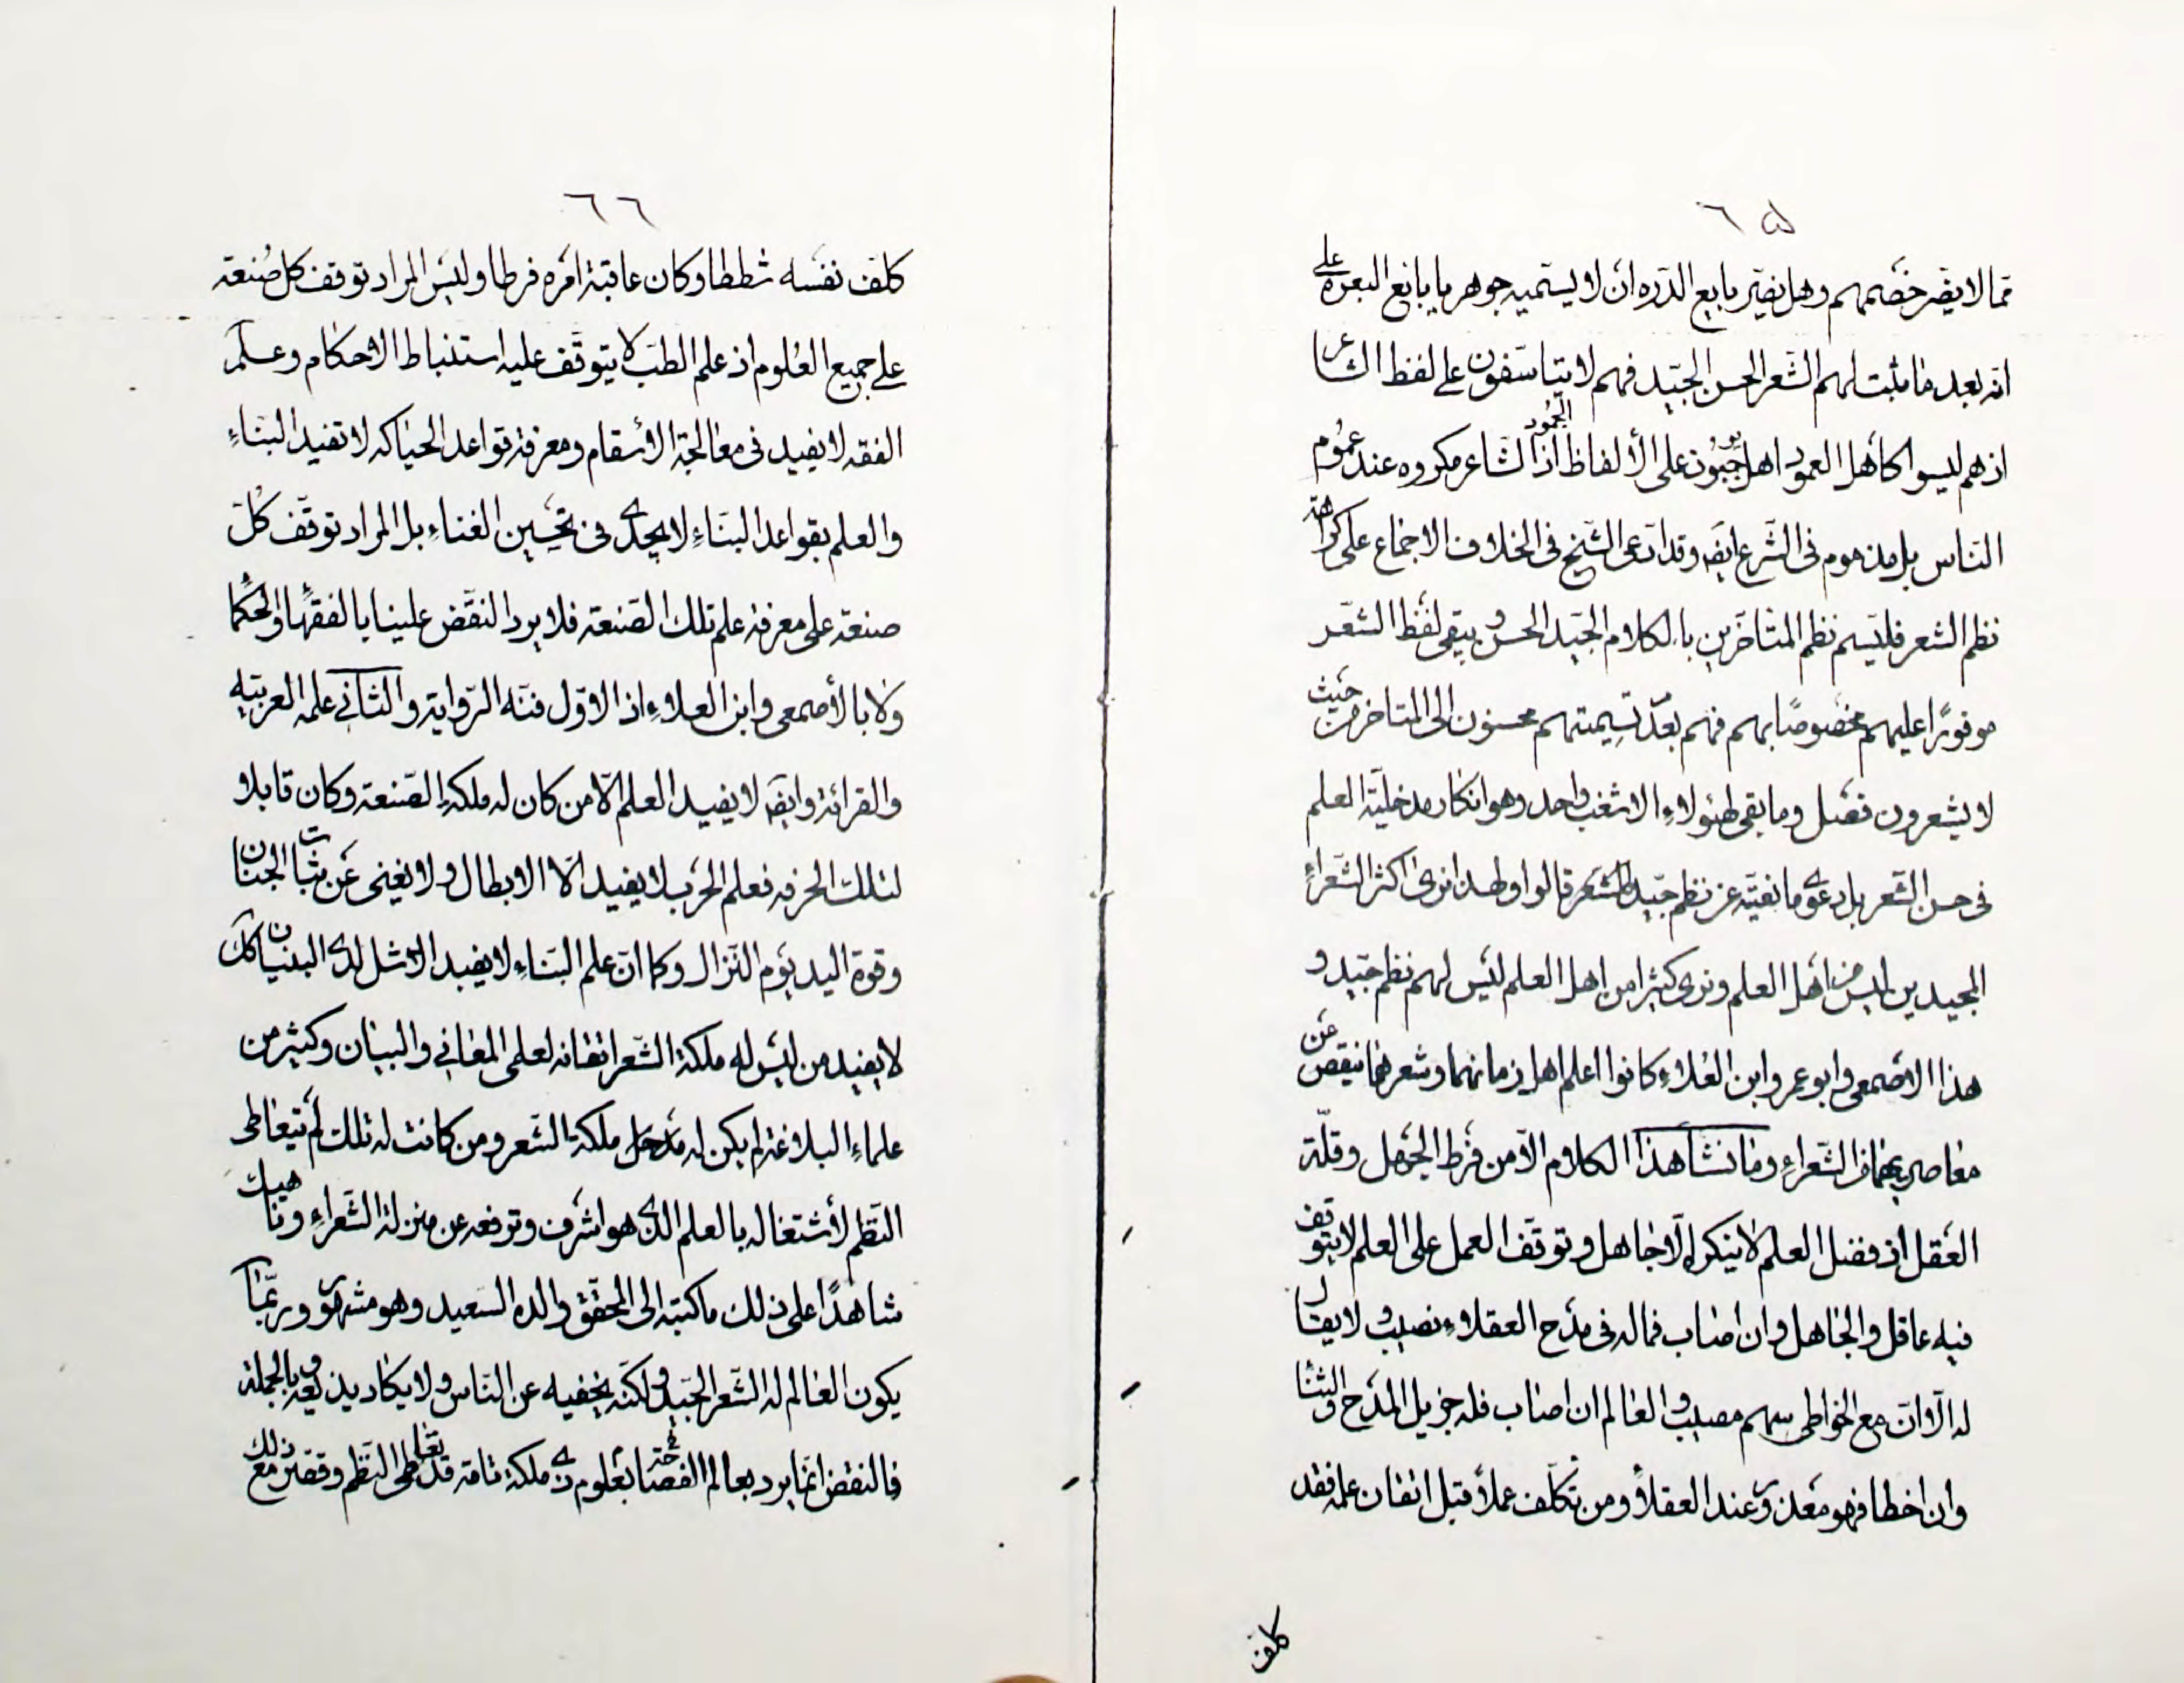 ٦٥
مما لا يضر خصمهم وهل يضير بايع الدره ان لا يسميه جوهريا بايع البعره على
انه بعد ما ثبت لهم الشعر الحسن الجيد فهم لا يتاسفون على لفظ الشاعر
اذ هم ليسوا كأهل العمود اهل الجمود يجبون على الألفاظ اذ الشاعر مكروه عند عموم
الناس بل مذموم فى الشرع ايضه وقد ادعى الشيخ فى الخلاف الاجماع على كراهة
نظم الشعر فليسم نظم المتأخرين بالكلام الجيد الحسن ويبقى لفظ الشعر
موفورًا عليهم مخصوصًا بهم فهم بعد تسميتهم محسنون الى المتاخر من حيث
لا يشعرون فصل وما بقى لهئولاء الا شغب واحد وهو انكار مدخلية العلم
فى حسن الشعر بل دعوى مانفيته عن نظم جيد الشعر قالوا ولهذا نرى اكثر الشعراء
المجيدين ليس من اهل العلم ونرى كثيرا من اهل العلم ليس لهم نظم جيد و
هذا الاصمعى وابو عمرو ابن العلاء كانوا اعلم اهل زمانهما وشعرهما ينقص عن
معاصريهما من الشعراء وما نشأ هذا الكلام الا من فرط الجهل وقلة
العقل اذ فضل العلم لا ينكره الا جاهل وتوقف العمل على العلم لا يتوقف
فيه عاقل والجاهل وان اصاب فماله فى مدح العقلاء نصيب ولا يقال
له الا ان مع الخواطى سهم مصيب والعالم ان اصاب فله جزيل المدح والثنا
وان اخطا فهو معذور عند العقلاء ومن تكلف عملا قبل اتقان علمه فقد
كلف
٦٦
كلف نفسه شططا وكان عاقبة امره فرطا وليس المراد توقف كل صنعة
على جميع العلوم اذ علم الطب لا يتوقف عليه استنباط الاحكام وعلم
الفقه لا يفيد فى معالجة الاسقام ومعرفة قواعد الحياكه لا تفيد البناء
والعلم بقواعد البناء لا يجدى فى تحسين الغناء بل المراد توقف كل
صنعة على معرفة علم تلك الصنعة فلا يرد النقض علينا بالفقهاء والحكما
ولا بالأصمعى وابن العلاء اذ الاول فنه الرواية والثانى علمه العربيه
والقرائة وايضه لا يفيد العلم الا من كان له ملكة الصنعة وكان قابلا
لتلك الحرفه فعلم الحرب لا يفيد الا الابطال ولا يغنى عن ثبات الجنان
وقوة اليد يوم النزال وكما ان علم البناء لا يفيد الاشل لدى البنيان كك
لا يفيد من ليس له ملكة الشعر اتقانه لعلمى المعانى والبيان وكثير من
علماء البلاغة لم يكن له مدخل ملكة الشعر ومن كانت له تلك لم يتعاطى
النظم لأشتغاله بالعلم الذى هو اشرف وترفعه عن منزلة الشعراء وناهيك
شاهدًا على ذلك ما كتبه الى المحقق والده السعيد وهو مشهور وربما
يكون العالم له الشعر الجيد ولكنه يخفيه عن الناس ولا يكاد يذيعه وبالجملة
فالنقض انما يرد بعالم بعلوم الفصاحة ذى ملكة تامة قد تعاطى النظم وقصر مع ذلك